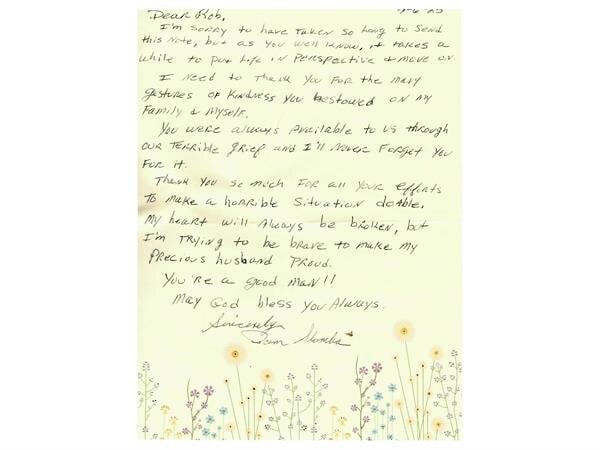 Dear Rob,
I'm sorry to have taken so long to send
this note, but as you well know, it takes a
while to put life in perspective & move on.
I need to thank you for the many
gestures of kindness you bestowed on my
family & myself.
You were always available to us through
our terrible grief and I'll never forget you
for it.
Thank you so much for all your efforts
to make a horrible situation doable.
My heart will always be broken, but
I'm trying to be brave to make my
precious husband proud.
You're a good man!!
May God bless you always.
Sincerely
Pam